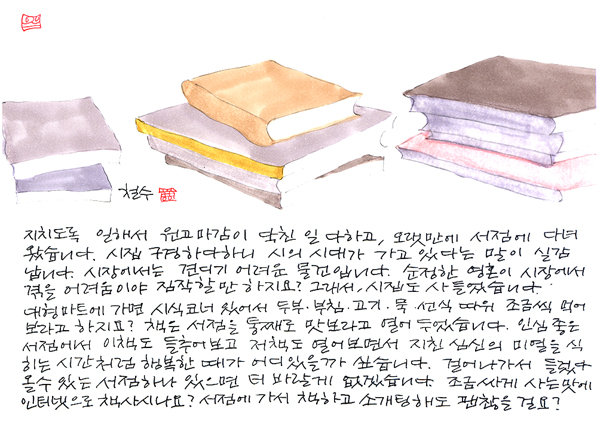 철수
지치도록 일해서 원고마감이 닥친 일 다하고, 오랫만에 서점에 다녀
왔습니다. 시집 구경하다하니 시의 시대가 가고 있다는 말이 실감
납니다. 시장에서는 견디기 어려운 물건입니다. 순정한 영혼이 시장에서
겪을 어려움이야 짐작할 만 하지요? 그래서, 시집도 사 들었습니다.
대형마트에 가면 시식코너 있어서 두부·부침·고기·묵·선식 따위 조금씩 먹어
보라고 하지요? 책은 서점을 통째로 맛보라고 열어 두었습니다. 인심 좋은
서점에서 이책도 들추어보고 저책도 열어보면서 지친 심신의 미열을 식
히는 시간처럼 행복한 때가 어디있을까 싶습니다. 걸어나가서 들렀다
올수 있는 서점하나 있으면 더 바랄게 없겠습니다. 조금싸게 사는맛에
인터넷으로 책사시나요? 서점에 가서 책하고 소개팅해도 괜찮을 걸요?